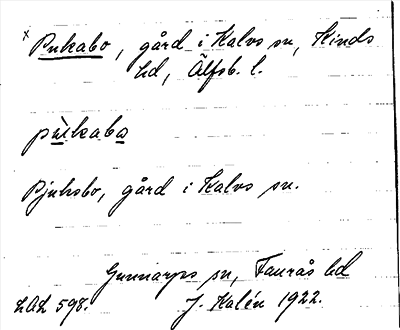 x Pukabo, gård i Kalvs sn, Kinds
hd, Älfsb. l.
pùkaba
Pjuksbo, gård i Kalvs sn.
Gunnarps sn, Faurås hd
LAL 598. J. Kalén 1922.